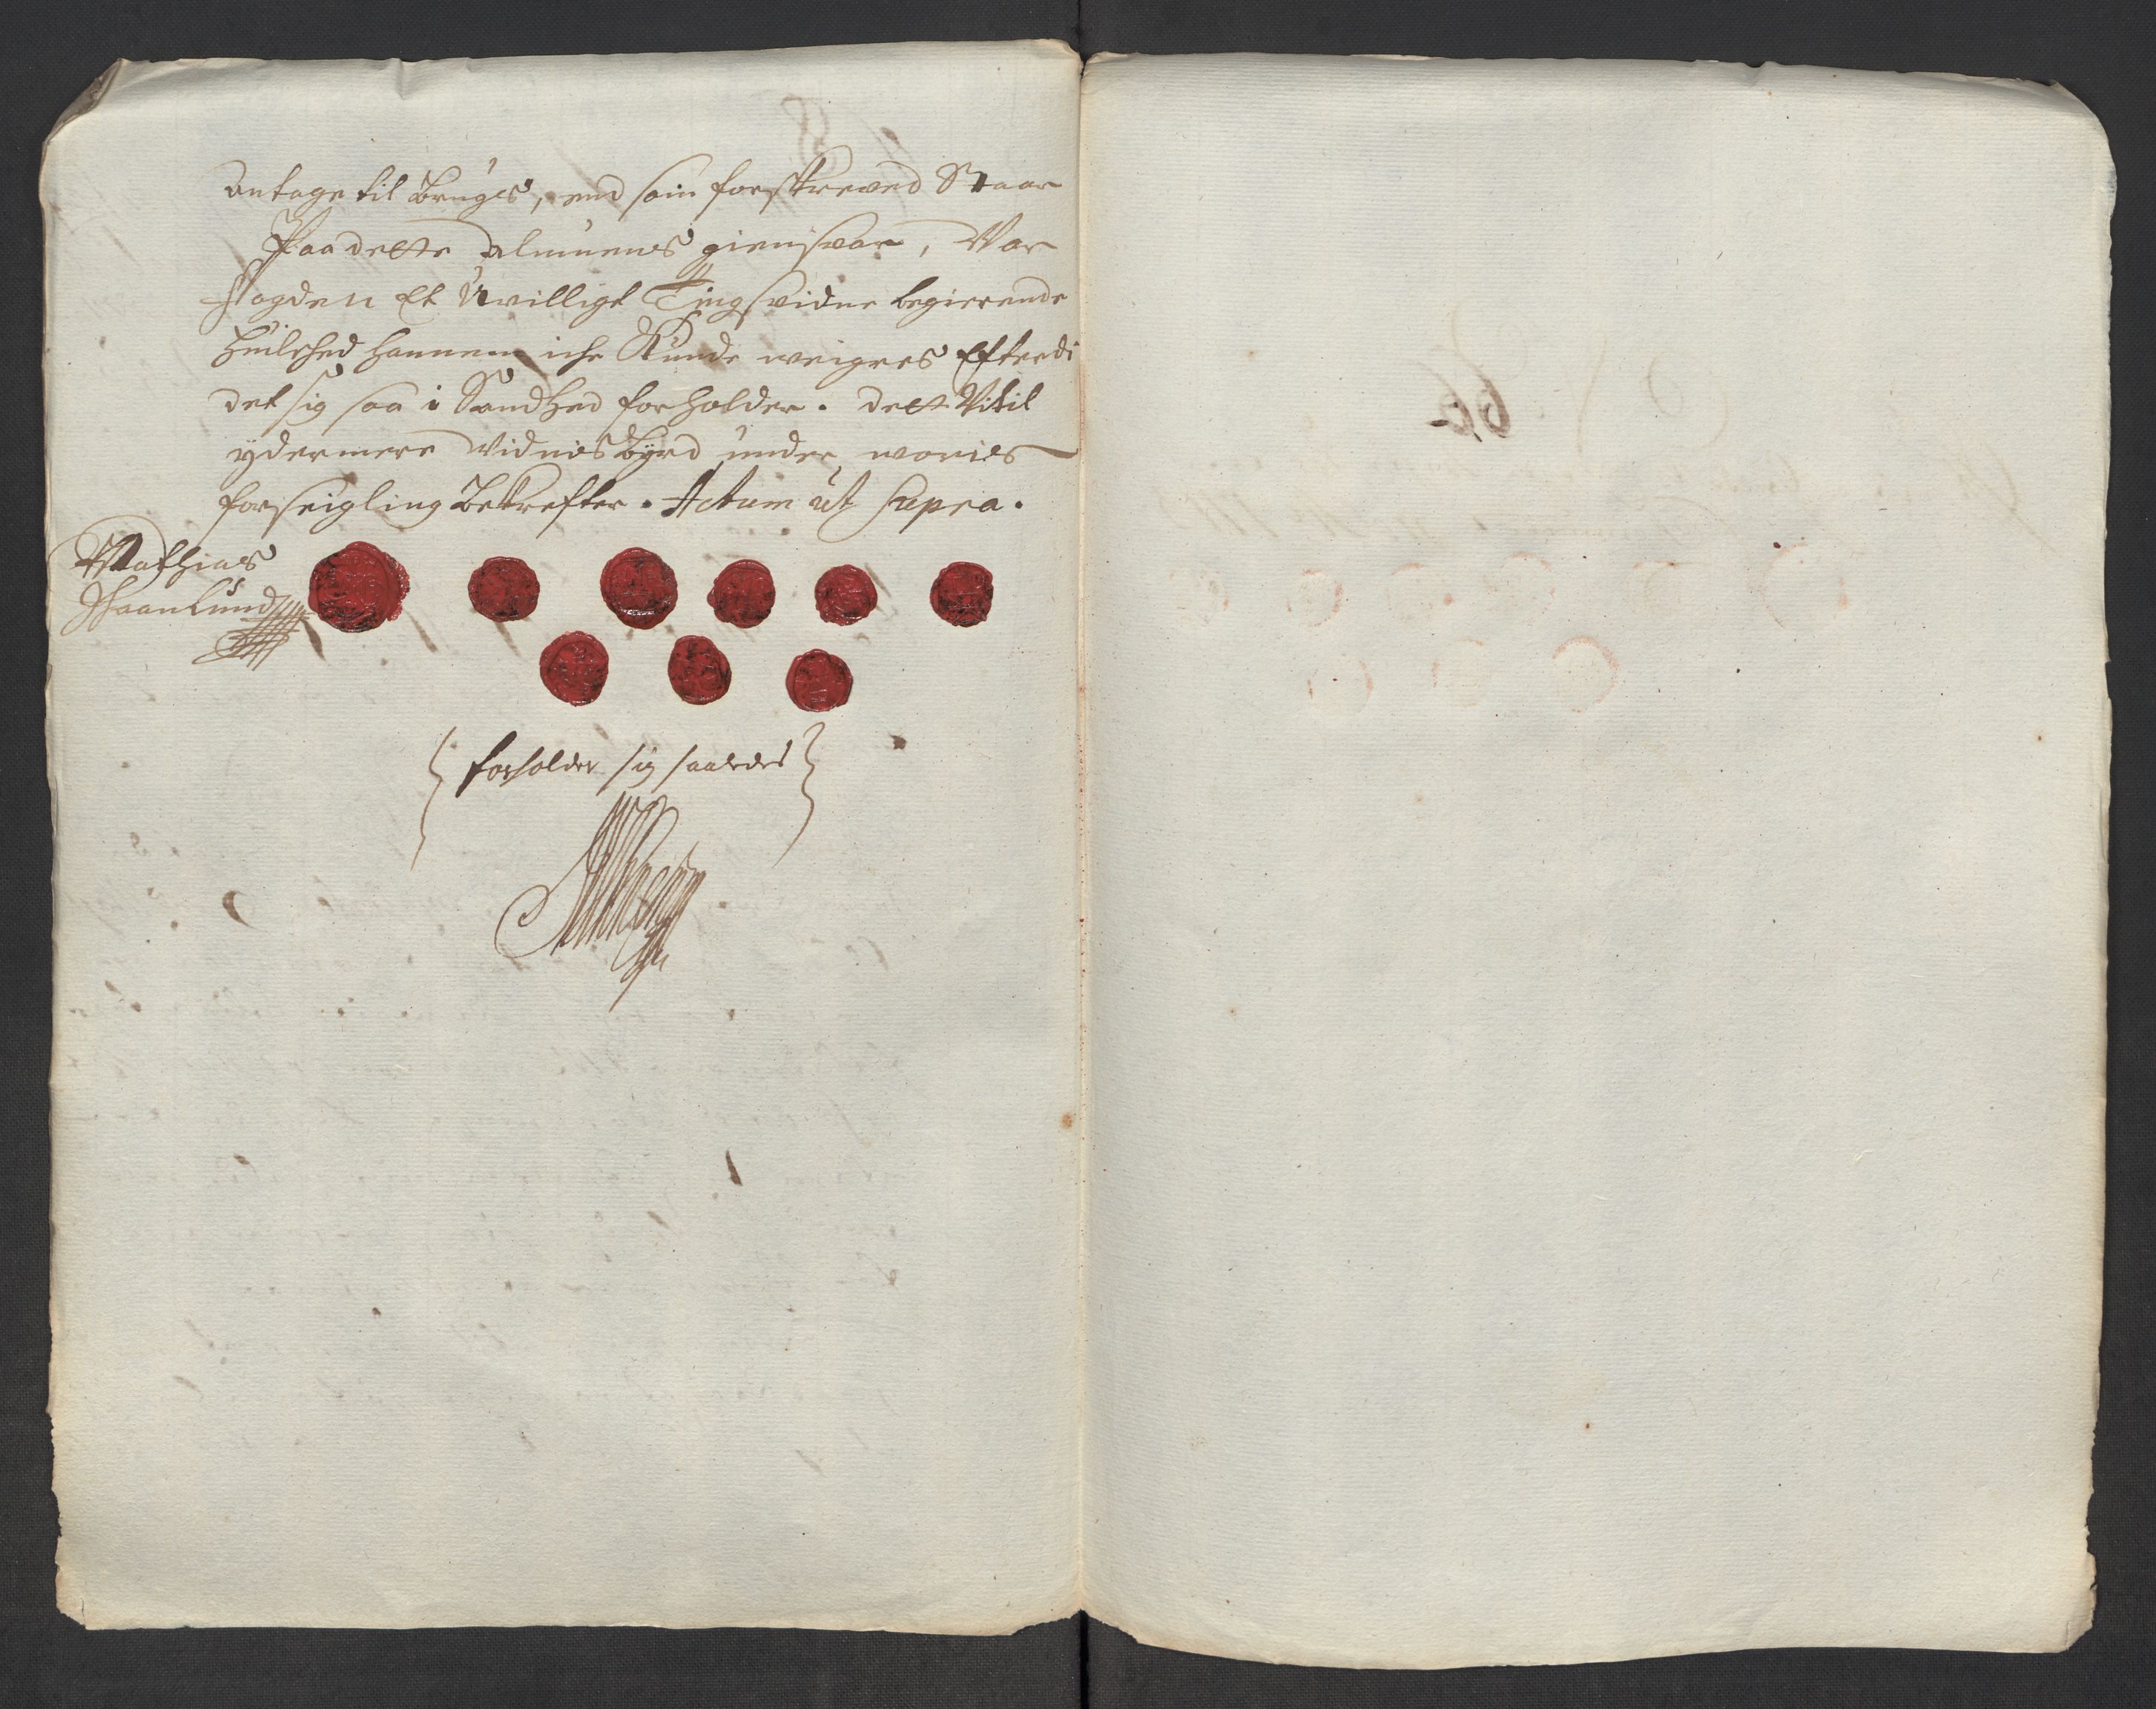 antage til Bruges, end som forskreved Staar
Paa dette Almuens giensvar, Var
fogden Et Uvilligt Tingsvidne begierende
huilched hannem iche Kunde weigres Efterdi
det sig saa i Sandhed forholder. dett Vi til
ydermere Vidnisbyrd under worres
forseigling Bekrefter. Actum ut supra.
Mathias
forholder sig saaledes